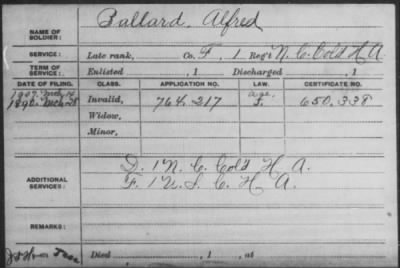 Ballard, Alfred
NAME OF
SOLDIER:
SERVICE: Late rank, Co. F, 1 Reg't N. C. Col'd H A
TERM OF
SERVICE: Enlisted , 1 Discharged , 1
DATE OF FILING. CLASS. APPLICATION NO. LAW. CERTIFICATE NO.
1907 Mch
Invalid, 764.217 650.338
Widow,
Minor,
ADDITIONAL
SERVICES:
D. 1 N. C. Col'd H. A.
F. 1 U. S. C. H. A.
REMARKS:
Died , 1 , at